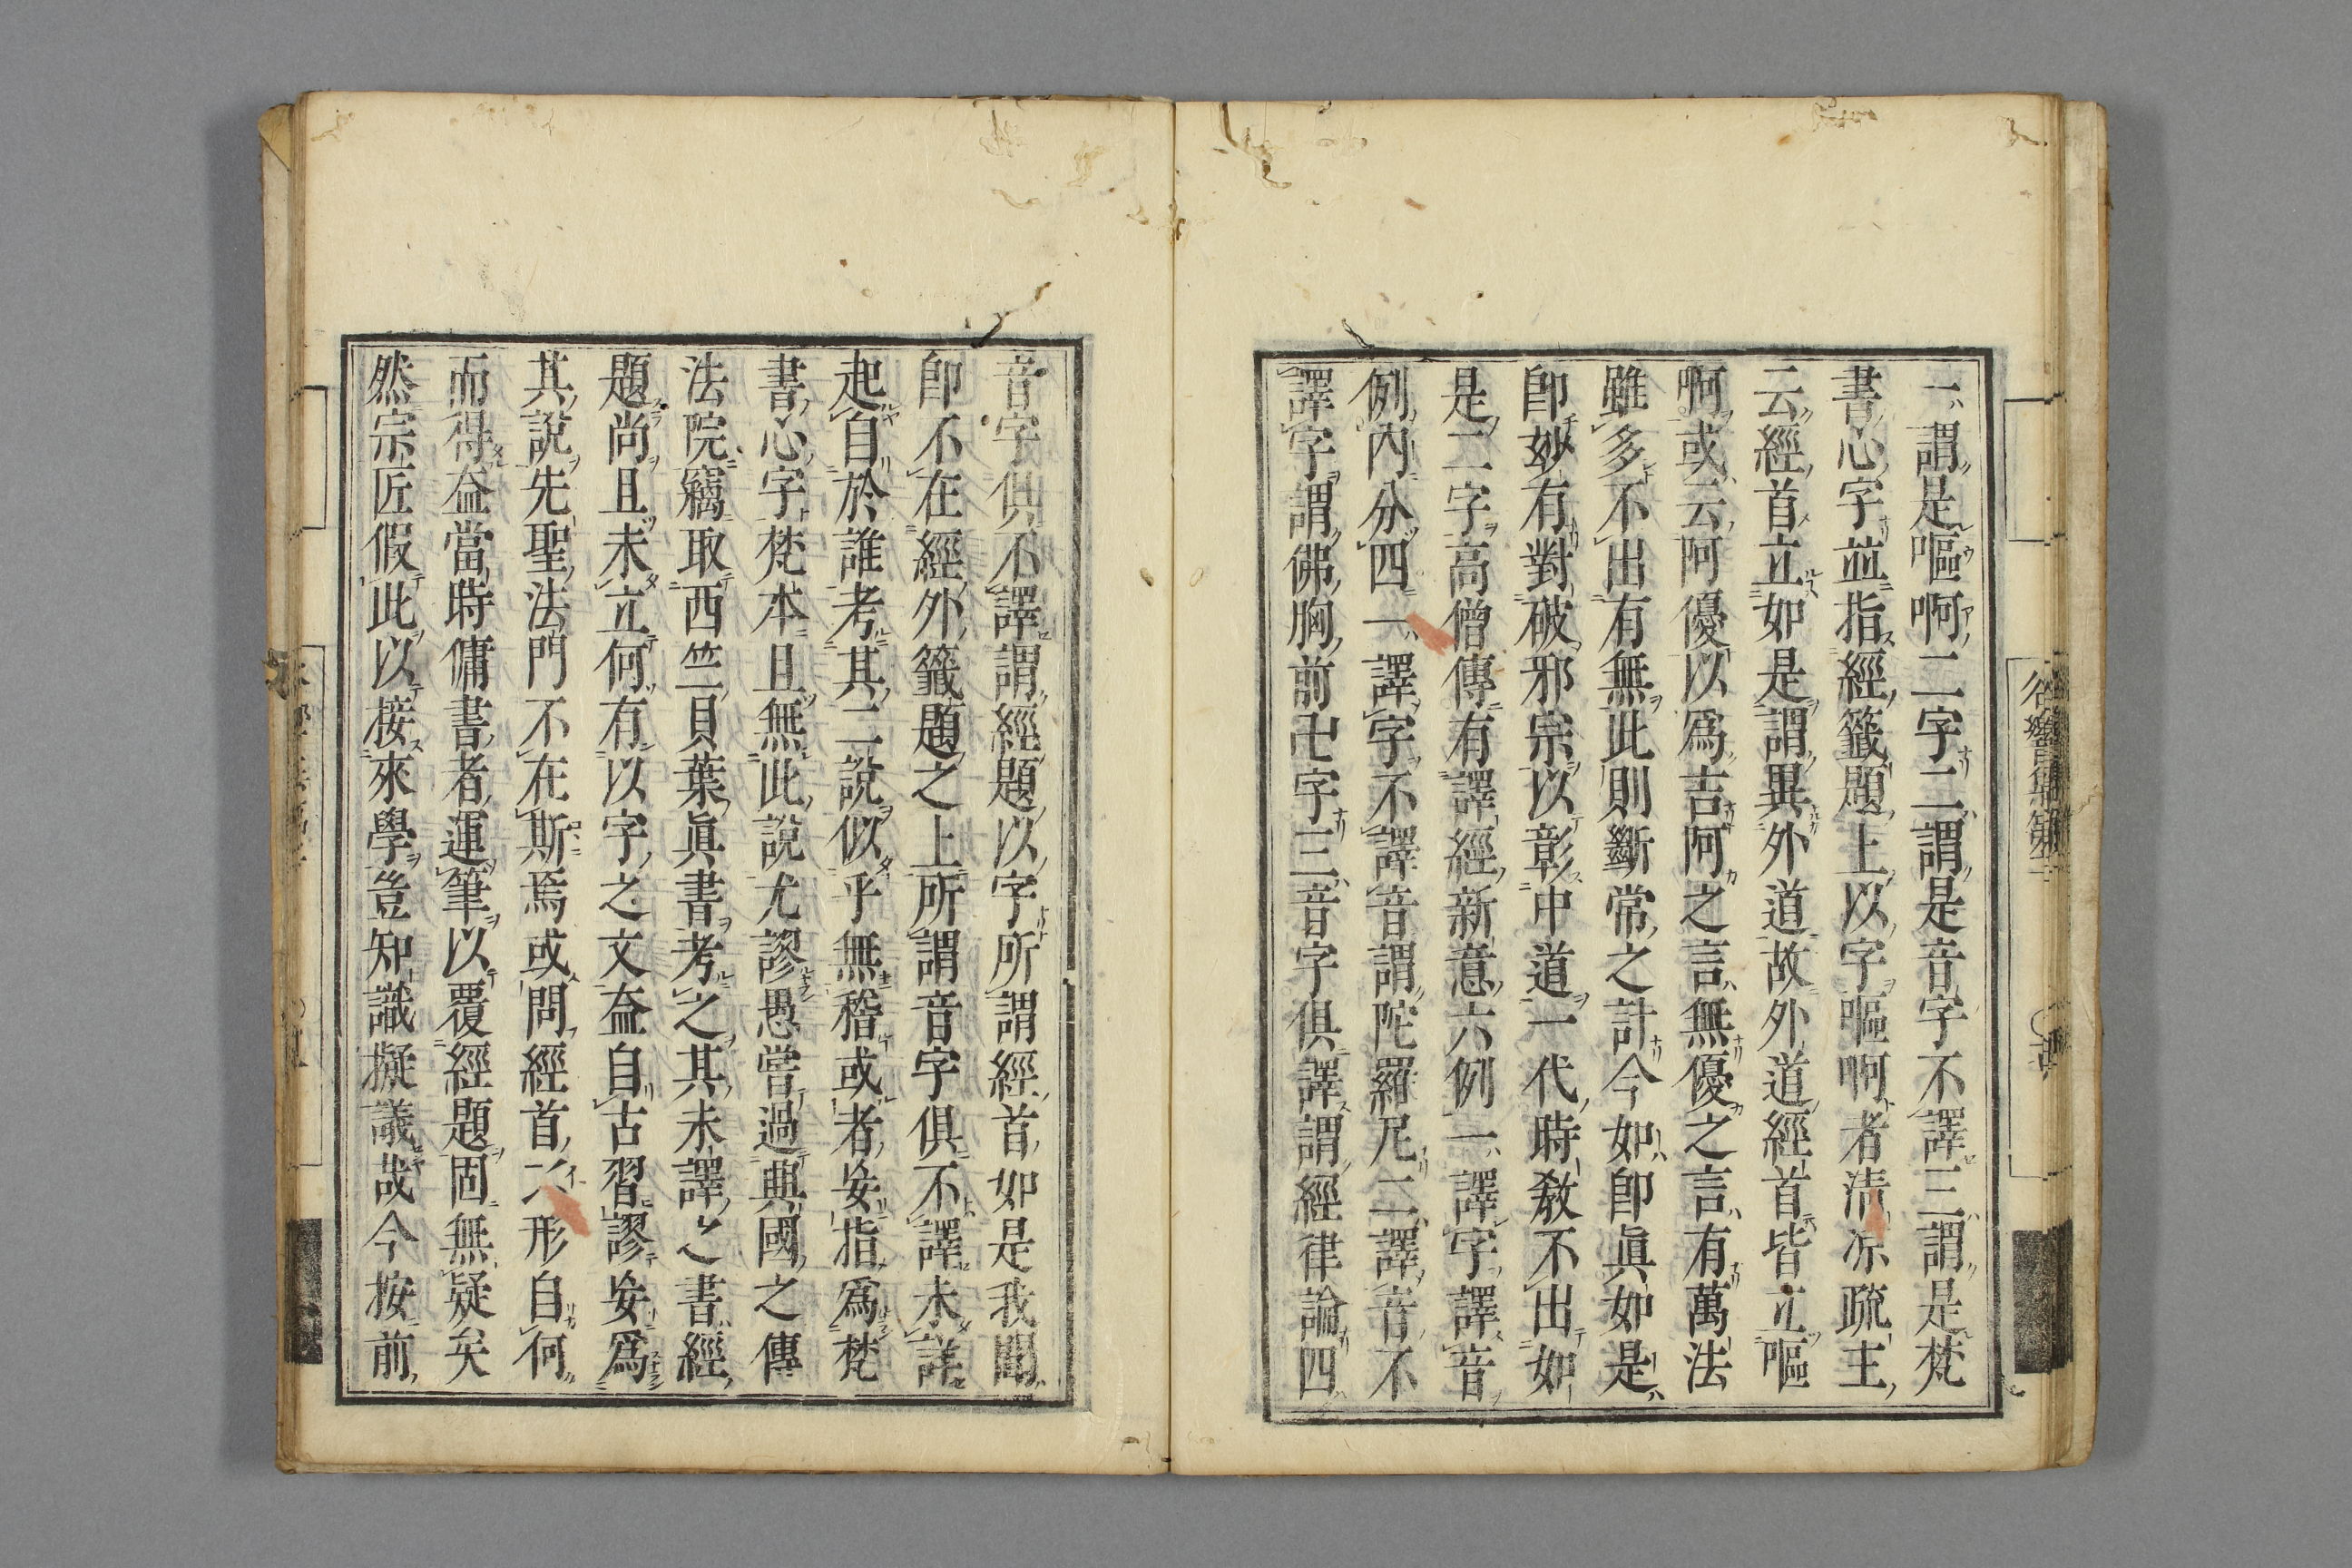 一謂是嘔啊二字二謂是音字不譯三謂是梵
書心字並指經籤題上以字嘔啊者清凉疏主
云經首立如是謂異外道故外道經首皆立嘔
啊或云阿優以爲吉阿之言無優之言有萬法
雖多不出有無此則斷常之計今如卽眞如是
卽妙有對破邪宗以彰中道一代時教不出如
是二字高僧傳有譯經新意六例一譯字譯音
例內分四一譯字不譯音謂陀羅尼二譯音不
譯字謂佛胸前卍字三音字俱譯謂經律論四
音字俱不譯謂經題以字所謂經首如是我聞
卽不在經外籤題之上所謂音字俱不譯未詳
起自於誰考其二說似乎無稽或者妄指爲梵
書心字梵本且無此說尤謬愚嘗過興國之傳
法院竊取西竺貝葉眞書考之其未譯之書經
題尚且未立何有以字之文益自古習謬妄爲
其說先聖法門不在斯焉或問經首形自何
而得益當時傭書者運筆以覆經題固無疑矣
然宗匠假此以接來學豈知識擬議哉今按前